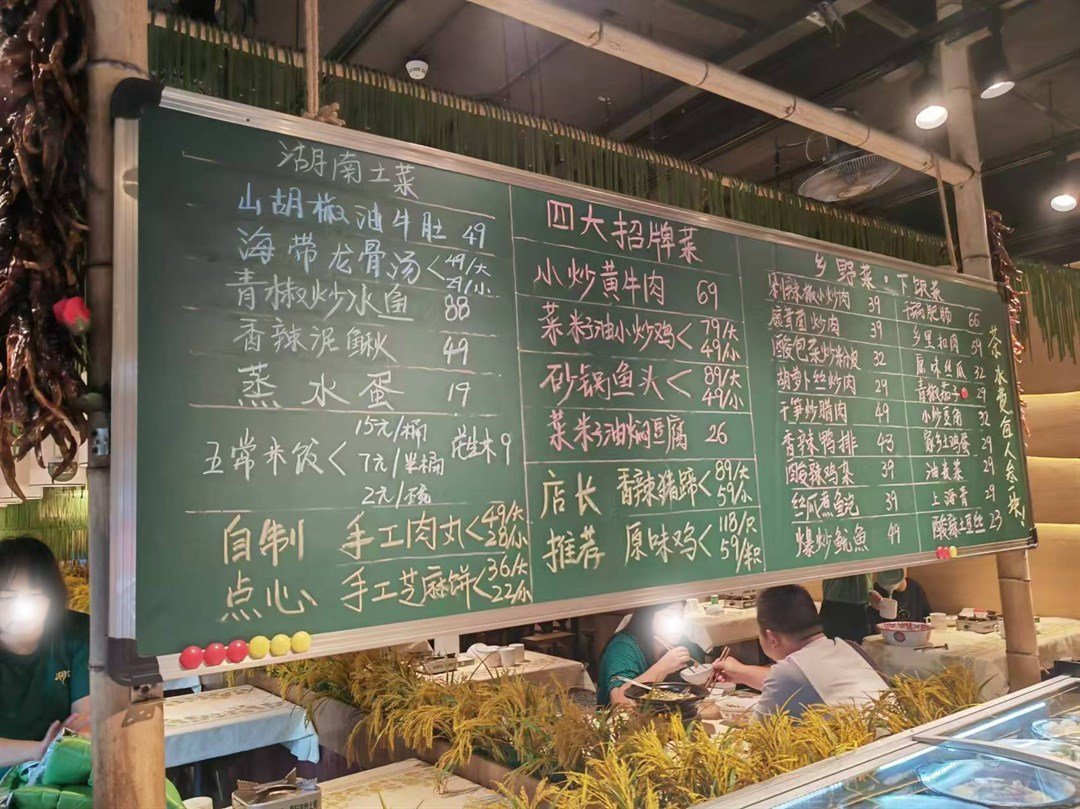 湖南土菜
山胡椒油牛肚 49
海带龙骨汤<49/大 29/小
青椒炒水鱼 88
香辣泥鳅 49
蒸水蛋 19
五常米饭<15元/桶 7元/半桶 2元/碗
花生米 9
自制点心
手工肉丸<48/大 28/小
手工芝麻饼<36/大 22/小
四大招牌菜
小炒黄牛肉 69
菜籽油小炒鸡<79/大 49/小
砂锅鱼头<89/大 49/小
菜籽油焖豆腐 26
店长推荐
香辣猪蹄<89/大 59/小
原味鸡<118/只 59/半只
乡野菜·下饭菜
剁辣椒小炒肉 39
炒肉 39
酸包菜炒粉皮 32
胡萝卜丝炒肉 29
干笋炒腊肉 49
香辣鸭排 43
酸辣鸡杂 39
丝瓜煮鱼泡 39
爆炒鱿鱼 49
干锅肥肠 66
乡里扣肉 39
原味丝瓜 32
青椒茄子 29
小炒豆角 32
土鸡蛋 29
油麦菜 29
上海青 29
酸辣土豆丝 23
茶水费每人叁块!